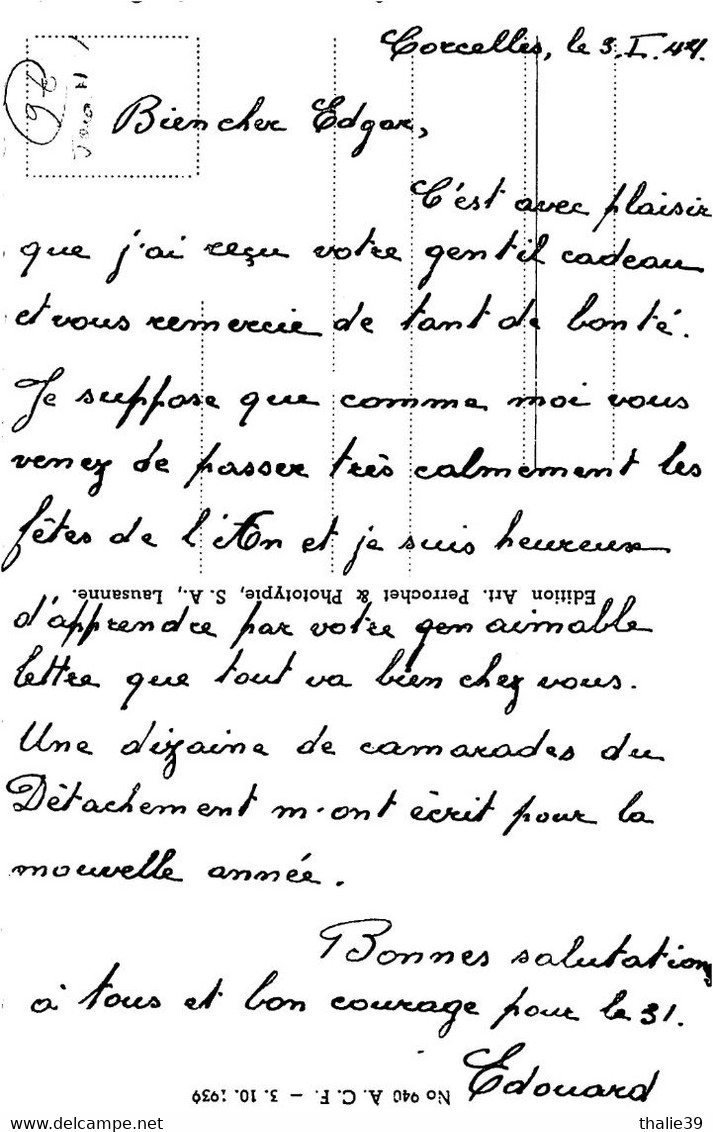 Corcelles, le 3.I.44.
Bien cher Edgar,
C'est avec plaisir
que j'ai reçu votre gentil cadeau
et vous remercie de tant de bonté.
Je suppose que comme moi vous
venez de passer très calmement les
fêtes de l'An et je suis heureux
Edition Art. Perrochet & Phototypie, S. A., Lausanne.
d'apprendre par votre aimable
lettre que tout va bien chez vous.
Une dizaine de camarades du
Détachement m'ont écrit pour la
nouvelle année.
Bonnes salutations
à tous et bon courage pour le 31.
Edouard
No 940 A. C. F. – 3. 10. 1939
delcampe.net
thalie39